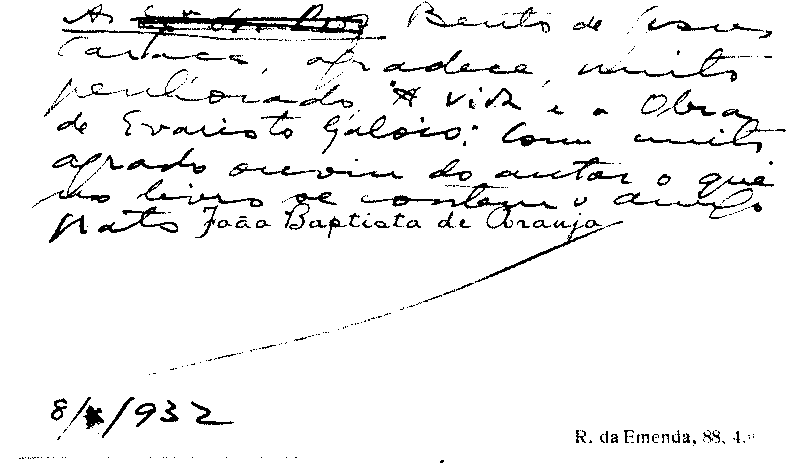 Ao Bento de Jesus
Caraça, agradece, muito
penhorado, "A vida e a Obra
de Evaristo Galois". Com muito
agrado ouviu do autor o que
no livro se contem o amigo
grato João Baptista de Araujo
8/X/932
R. da Emenda, 88, 4.º